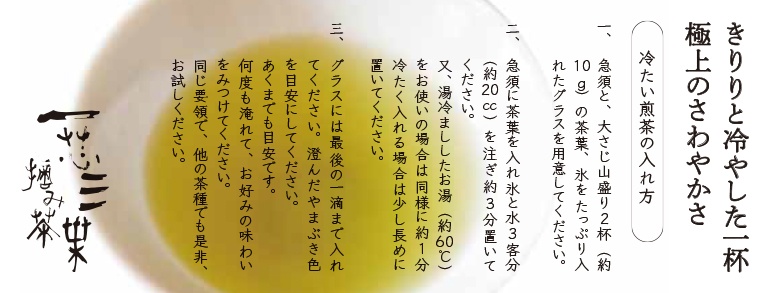 きりりと冷やした一杯
極上のさわやかさ
冷たい煎茶の入れ方
一、急須と、大さじ山盛り2杯（約
10g）の茶葉、氷をたっぷり入
れたグラスを用意してください。
二、急須に茶葉を入れ氷と水3客分
（約20cc）を注ぎ約3分置いて
ください。
又、湯冷まししたお湯（約60℃）
をお使いの場合は同様に約1分
冷たく入れる場合は少し長めに
置いてください。
三、グラスには最後の一滴まで入れ
てください。澄んだやまぶき色
を目安にしてください。
あくまでも目安です。
何度も淹れて、お好みの味わい
をみつけてください。
同じ要領で、他の茶種でも是非、
お試しください。
一芯三葉
摘み茶